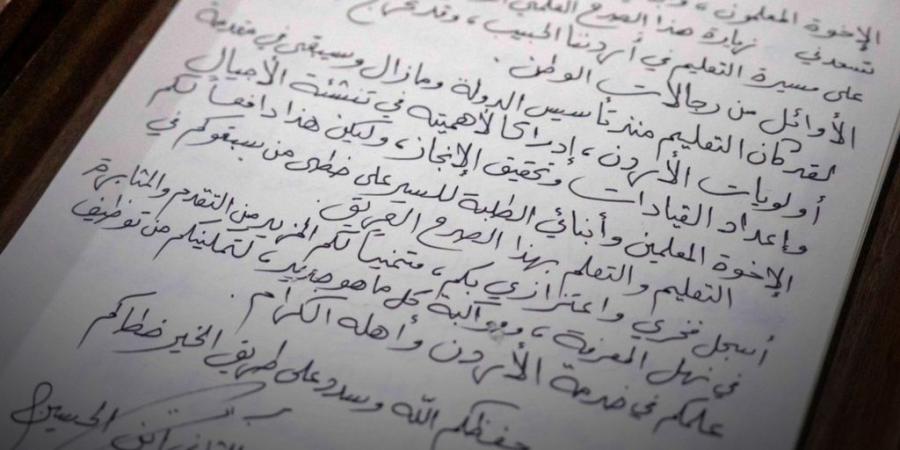 الإخوة المعلمون،
تسعدني زيارة هذا الصرح العلمي
على مسيرة التعليم في أردننا الحبيب، وقد تخرج
الأوائل من رجالات الوطن.
لقد كان التعليم منذ تأسيس الدولة ومازال وسيبقى في مقدمة
أولويات الأردن، إدراكاً لأهميته في تنشئة الأجيال
وإعداد القيادات وتحقيق الإنجاز، وليكن هذا دافعاً لكم
الإخوة المعلمين وأبنائي الطلبة للسير على خطى من سبقوكم في
التعليم والتعلم بهذا الصرح العريق.
أسجل فخري واعتزازي بكم، متمنياً لكم المزيد من التقدم والمثابرة
في نهل المعرفة، ومواكبة كل ما هو جديد، لتمكينكم من توظيف
علمكم في خدمة الأردن وأهله الكرام.
حفظكم الله وسدد على طريق الخير خطاكم
الحسين